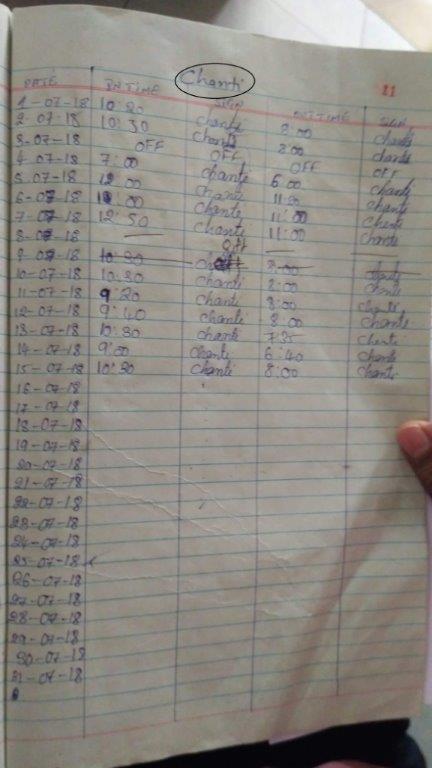 Chanti
11
DATE IN TIME SIGN OUT TIME SIGN
1-07-18 10:20 chanti 8:00 chanti
2-07-18 10:30 chanti 8:00 chanti
3-07-18 OFF OFF OFF OFF
4-07-18 7:00 chanti 6:00 chanti
5-07-18 12:00 chanti 11:30 chanti
6-07-18 chanti 11:00 chanti
7-07-18 12:50 chanti 11:00 chanti
8-07-18 — Off — —
9-07-18 10:30 8:00 chanti
10-07-18 10:30 chanti 8:00 chanti
11-07-18 9:20 chanti 8:00 chanti
12-07-18 9:40 chanti 8:00 chanti
13-07-18 10:30 chanti 7:35 chanti
14-07-18 9:00 chanti 6:40 chanti
15-07-18 10:30 chanti 8:00 chanti
16-07-18
17-07-18
18-07-18
19-07-18
20-07-18
21-07-18
22-07-18
23-07-18
24-07-18
25-07-18
26-07-18
27-07-18
28-07-18
29-07-18
30-07-18
31-07-18